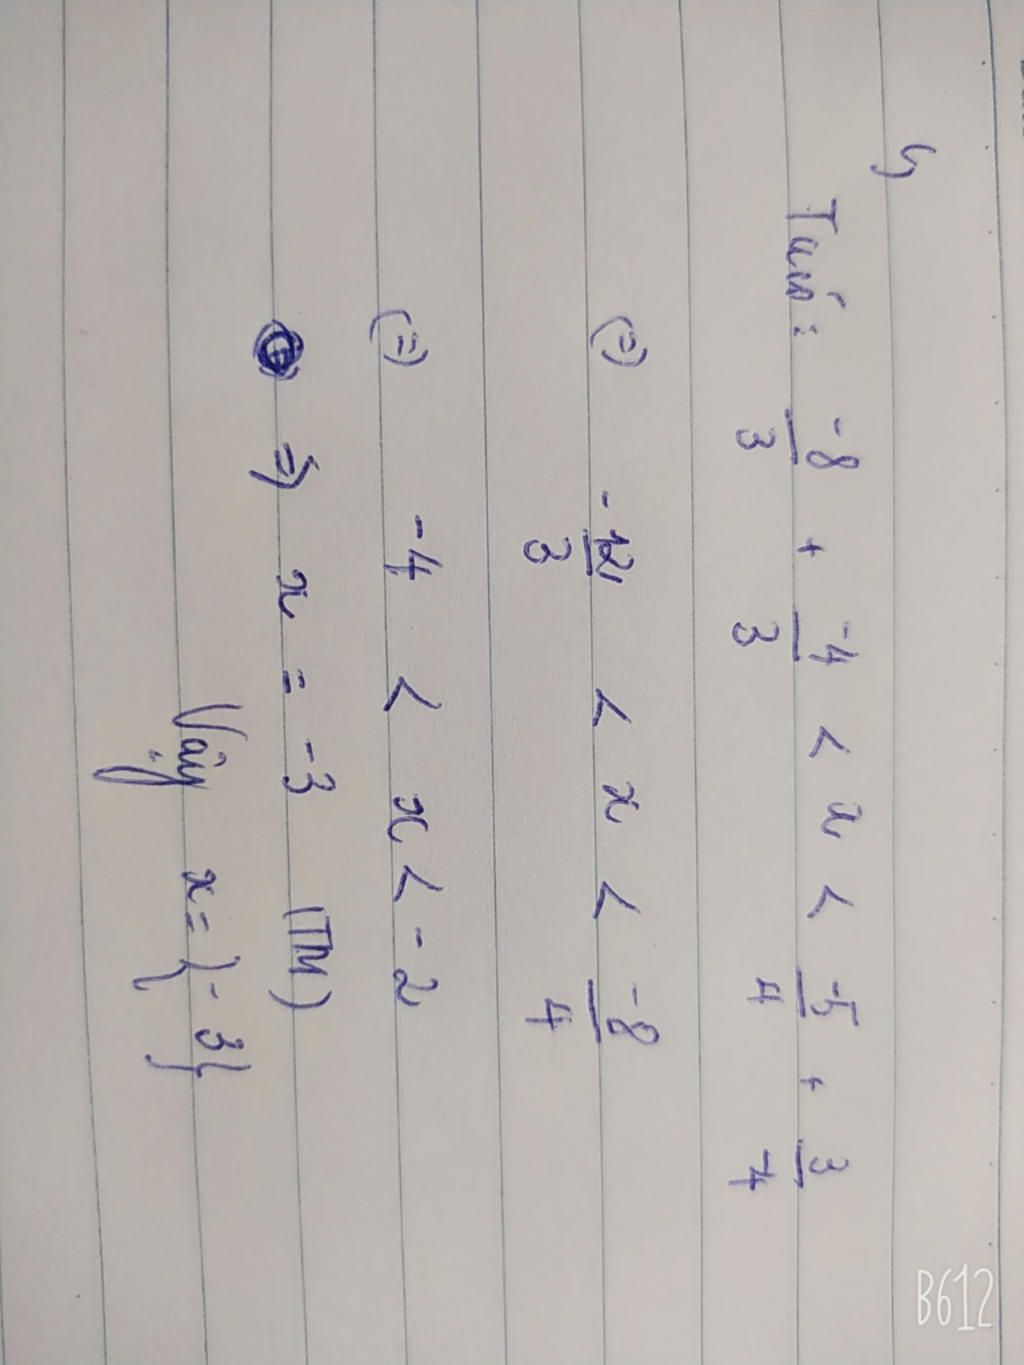 b,
Ta có : -8/3 + -4/3 < x < -5/4 + 3/4
(=) -12/3 < x < -8/4
(=) -4 < x < -2
=> x = -3 (TM)
Vậy x = {-3}
B612